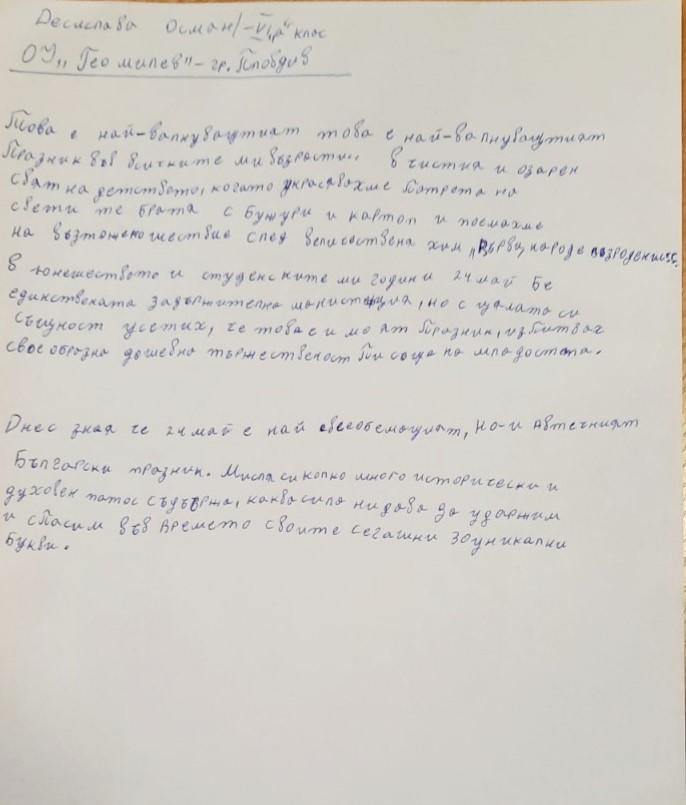 Десислава Осман/-VI„а" клас
ОУ„ Гео милев"- гр. Пловдив
Това е най-валнуващтиат това е най-валнуващтиат
Празник във всичките ми възрасти.. в чистиа и озарен
сват на детството, когато украсавахме Потрета на
свети те брата с бужури и картоп и поемахме
на възтожено шествие след величствена хим „Върви, народе възродении".
в юнешеството и студенските ми години 24 май бе
единствената задължителна манистация, но с цалата си
същност усетих, че това си мо ат Празник, изпитвах
свое образна душевна тържественост Пи соща на младостта.
Днес зная че 24 май е най всеобемащиат, но-и Автечниат
Български празник. Мисла си колко много исторически и
духовен патос съдържа, каква сила ни дава да ударжим
и спасим във времето своите сегашни 30 уникални
Букви.